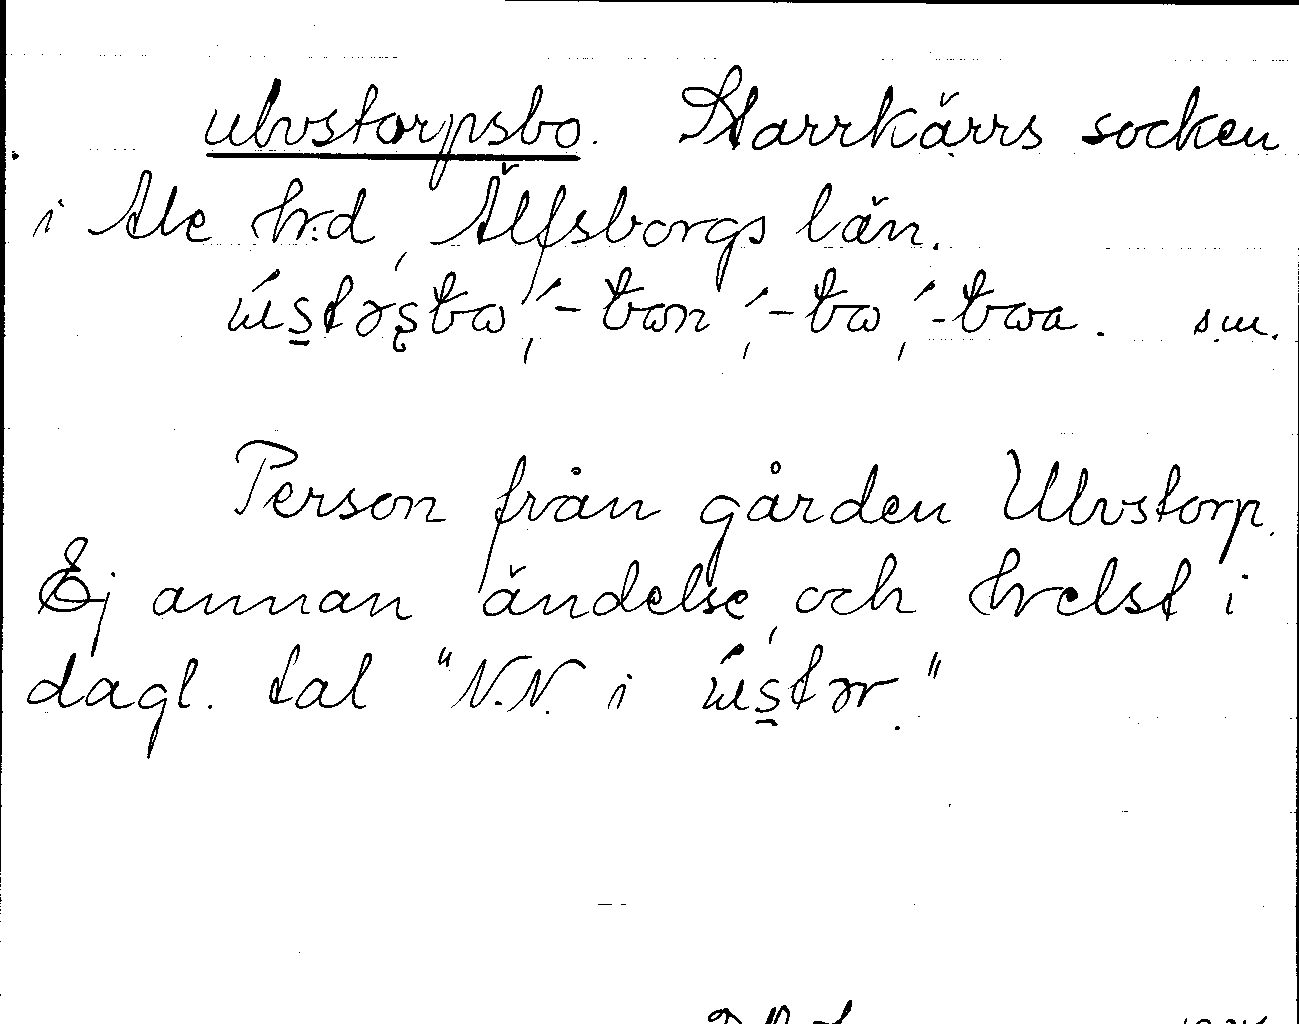 ulvstorpsbo. Starrkärrs socken
i Ale hrd, Älfsborgs län.
ústəsbω, -bωn, -bω, -bωa. s.m.
Person från gården Ulvstorp.
Ej annan ändelse, och helst i
dagl. tal "N.N. i ústər."